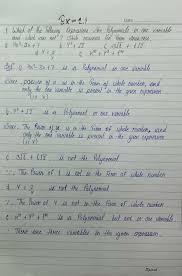 Ex - 2.1
Date
1. Which of the following expressions are Polynomials in one variable
and which are not? State reasons for your answer.
Sol: i) 4x² - 3x + 7 is a Polynomial in one variable
Since, powers of x is in the form of whole number, and
only the one variable is present in the given expression
is a Polynomial in one variable
Since, The Power of is in the form of whole number, and
only the one variable is present in the given expression
is not the Polynomial
∵ The Power of t is not in the form of whole number
is not the Polynomial
∵ The Power of y is not in the form of whole number
is a Polynomial but not in one variable
∵ There are three variables in the given expression.